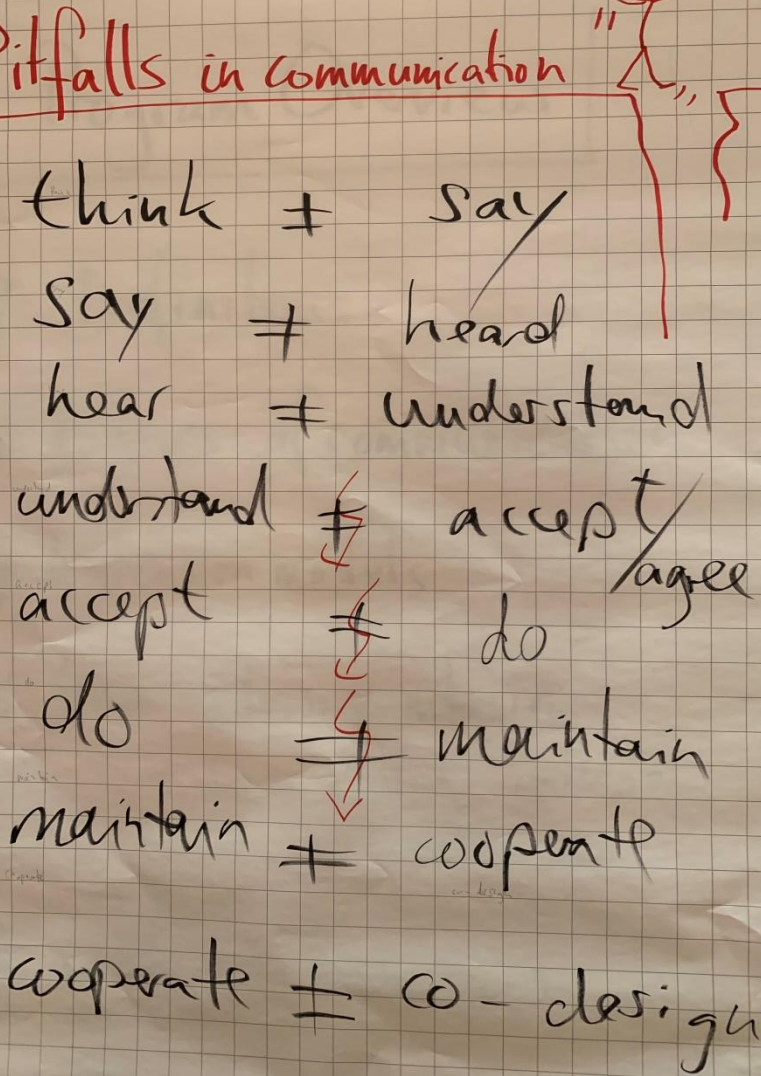 Pitfalls in communication
think ≠ say
say ≠ heard
hear ≠ understand
understand ≠ accept/
/agree
accept ≠ do
do ≠ maintain
maintain ≠ cooperate
cooperate ≠ co-design